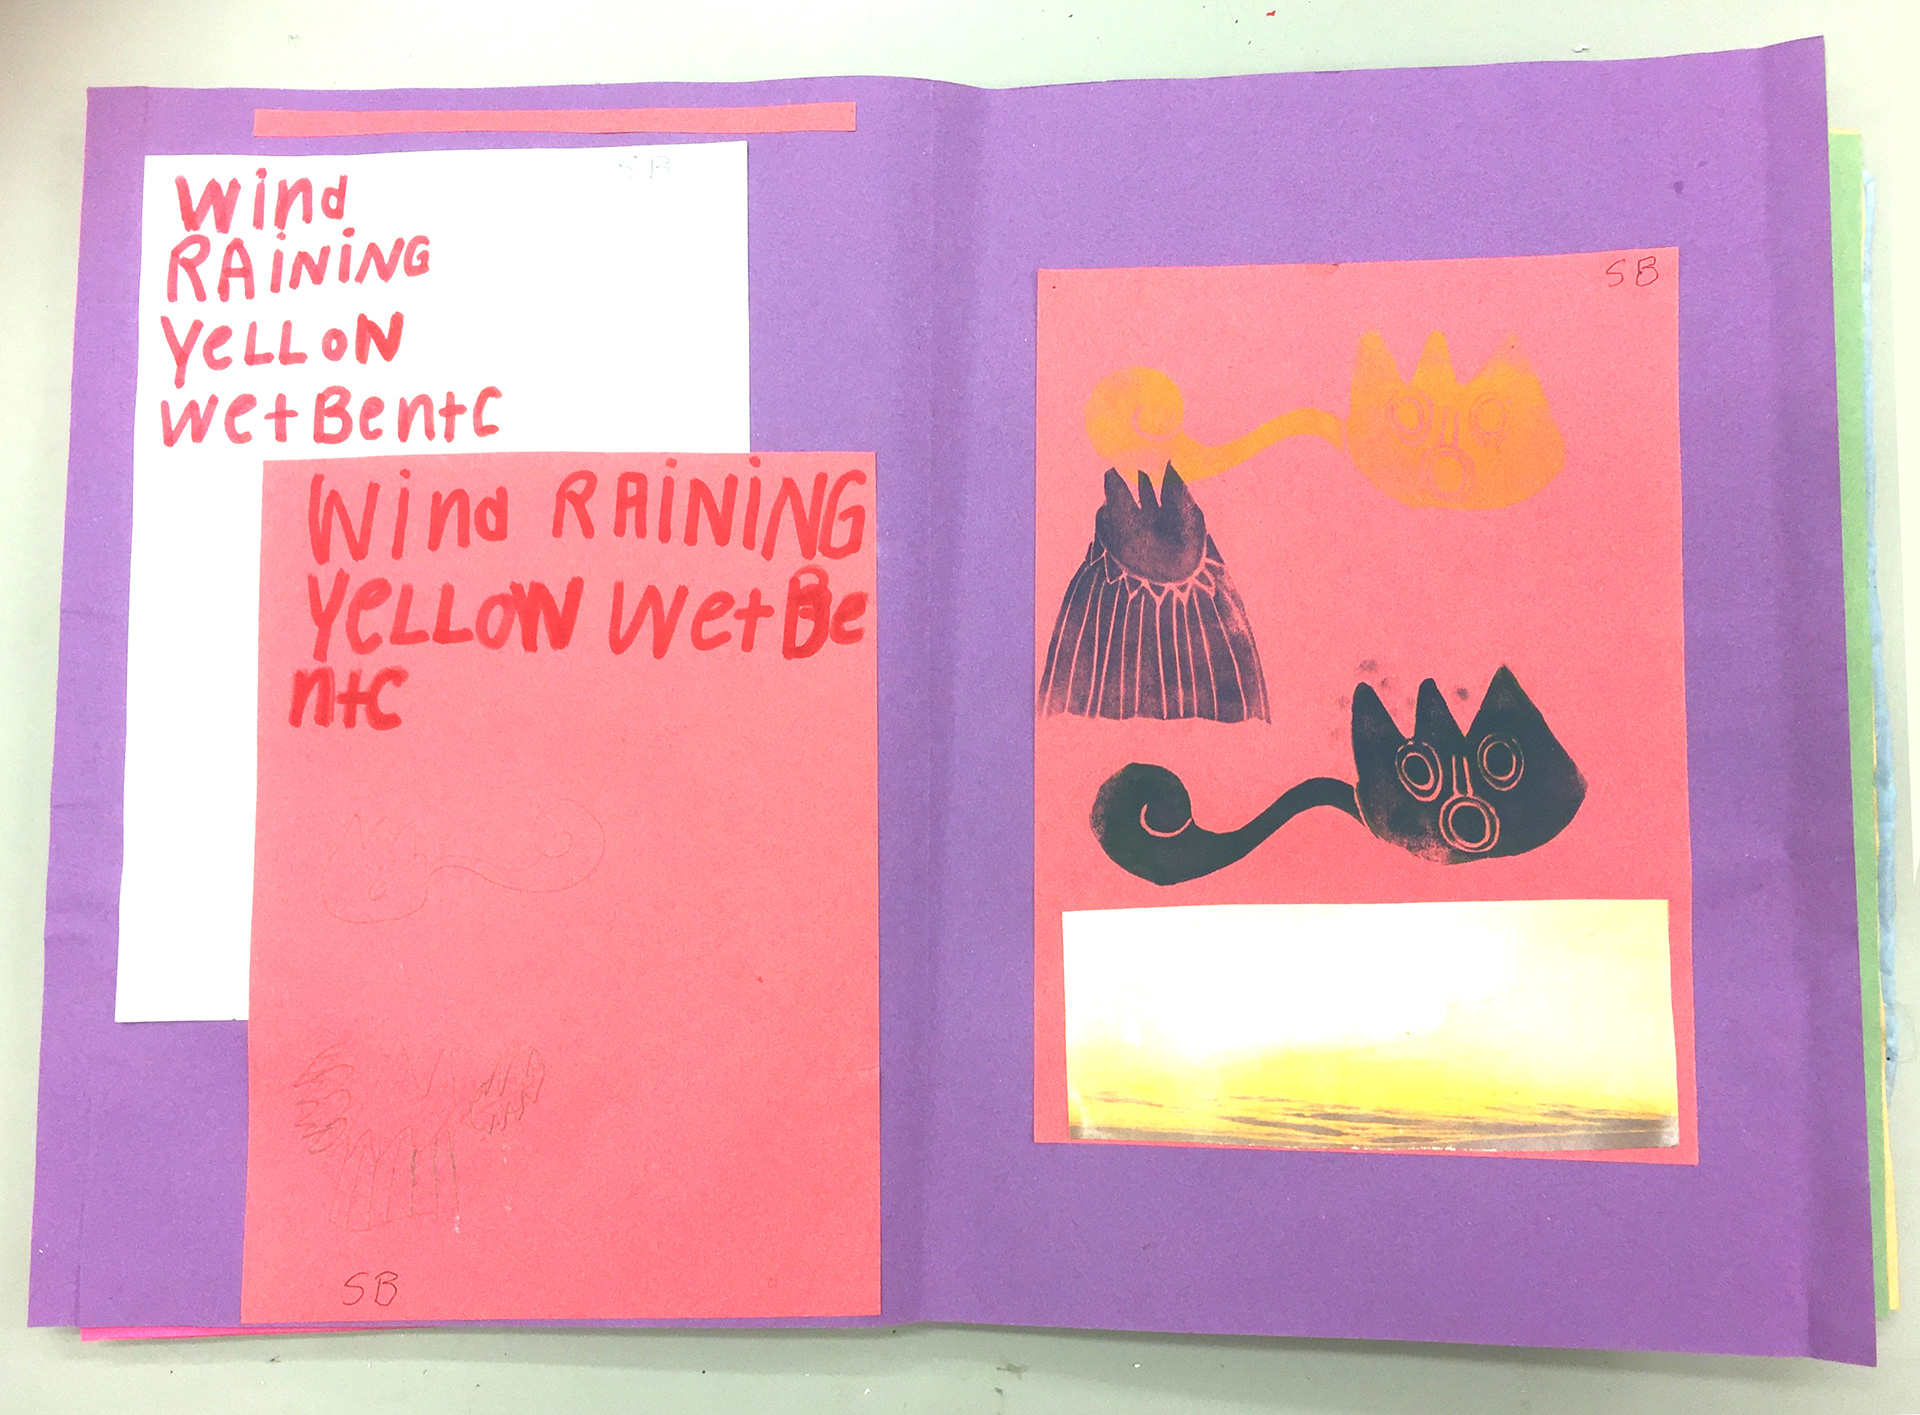 SB
Wind
RAiNiNG
YeLLoN
wetBentC
Wind RAiNiNG
YeLLoW WetBe
ntC
SB
SB